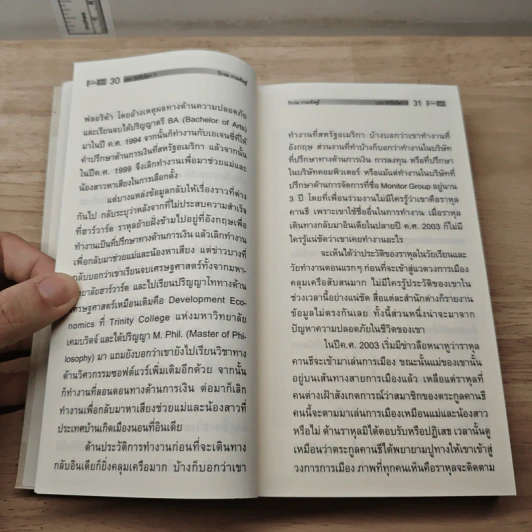 30
ฟลอริด้า โดยอ้างเหตุผลทางด้านความปลอดภัย
และเรียนจบได้ปริญญาตรี BA (Bachelor of Arts)
มาในปี ค.ศ. 1994 จากนั้นก็ทำงานกับเอเจนซีที่ให้
คำปรึกษาด้านการเงินที่สหรัฐอเมริกา แล้วจากนั้น
ในปีค.ศ. 1999 จึงเลิกทำงานเพื่อมาช่วยแม่และ
น้องสาวหาเสียงในการเลือกตั้ง
แต่บางแหล่งข้อมูลกลับให้เรื่องราวที่ต่าง
กันไป กลับระบุว่าหลังจากที่ไม่ประสบความสำเร็จ
ที่ฮาร์วาร์ด ราหุลย้ายฝั่งข้ามไปอยู่ที่อังกฤษเพื่อ
ทำงานเป็นที่ปรึกษาทางด้านการเงิน แล้วเลิกทำงาน
เพื่อกลับมาช่วยแม่และน้องหาเสียง แต่ข่าวบางที่
กลับบอกว่าเขาเรียนจบเศรษฐศาสตร์ทั้งจากมหา-
วิทยาลัยฮาร์วาร์ด และไปเรียนปริญญาโททางด้าน
เศรษฐศาสตร์เหมือนเดิมคือ Development Eco-
nomics ที่ Trinity College แห่งมหาวิทยาลัย
เคมบริดจ์ และได้ปริญญา M. Phil. (Master of Phi-
losophy) มา แถมยังบอกว่าเขายังไปเรียนวิชาทาง
ด้านวิศวกรรมซอฟต์แวร์เพิ่มเติมอีกด้วย จากนั้น
ก็ทำงานที่ลอนดอนทางด้านการเงิน ต่อมาก็เลิก
ทำงานเพื่อกลับมาหาเสียงช่วยแม่และน้องสาวที่
ประเทศบ้านเกิดเมืองนอนที่อินเดีย
ด้านประวัติการทำงานก่อนที่จะเดินทาง
กลับอินเดียก็ยิ่งคลุมเครือมาก บ้างก็บอกว่าเขา
31
ทำงานที่สหรัฐอเมริกา บ้างบอกว่าเขาทำงานที่
อังกฤษ ส่วนงานที่ทำบ้างก็บอกว่าทำงานในบริษัท
ที่ปรึกษาทางด้านการเงิน การลงทุน หรือที่ปรึกษา
ในบริษัทคอมพิวเตอร์ หรือแม้แต่ทำงานในบริษัทที่
ปรึกษาด้านการจัดการที่ชื่อ Monitor Group อยู่นาน
3 ปี โดยที่เพื่อนร่วมงานไม่มีใครรู้ว่าเขาคือราหุล
คานธี เพราะเขาใช้ชื่ออื่นในการทำงาน เมื่อราหุล
เดินทางกลับมาอินเดียในปลายปี ค.ศ. 2003 ก็ไม่มี
ใครรู้แน่ชัดว่าเขาเคยทำงานอะไร
จะเห็นได้ว่าประวัติของราหุลในวัยเรียนและ
วัยทำงานตอนแรกๆ ก่อนที่จะเข้าสู่แวดวงการเมือง
คลุมเครือสับสนมาก ไม่มีใครรู้ประวัติของเขาใน
ช่วงเวลานี้อย่างแน่ชัด สื่อแต่ละสำนักต่างก็รายงาน
ข้อมูลไม่ตรงกันเลย ทั้งนี้ส่วนหนึ่งน่าจะมาจาก
ปัญหาความปลอดภัยในชีวิตของเขา
ในปีค.ศ. 2003 เริ่มมีข่าวลือหนาหูว่าราหุล
คานธีจะเข้ามาเล่นการเมือง ขณะนั้นแม่ของเขานั้น
อยู่บนเส้นทางสายการเมืองแล้ว เหลือแต่ราหุลที่
คนต่างเฝ้าสังเกตการณ์ว่าสมาชิกของตระกูลคานธี
คนนี้จะตามมาเล่นการเมืองเหมือนแม่และน้องสาว
หรือไม่ ด้านราหุลมิได้ตอบรับหรือปฏิเสธ เวลานั้นดู
เหมือนว่าตระกูลคานธีได้พยายามปูทางให้เขาเข้าสู่
วงการการเมือง ภาพที่ทุกคนเห็นคือราหุลจะติดตาม